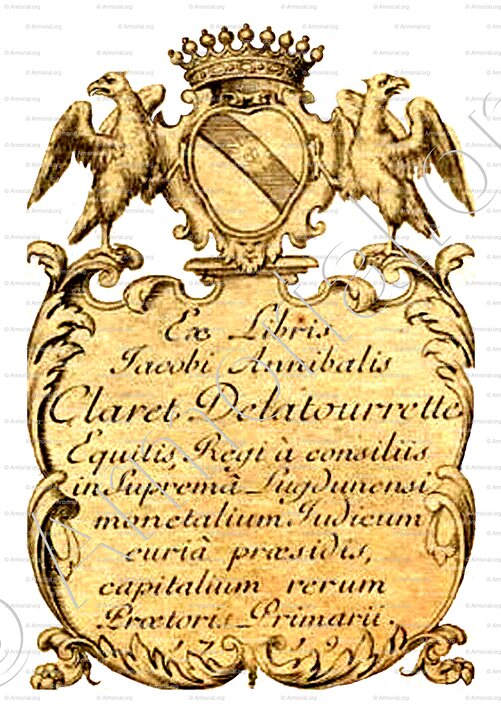 Ex Libris
Jacobi Annibalis
Claret Delatourrette
Equitis, Regi à consiliis
in Supremâ Lugdunensi
monetalium Judicum
curiâ præsidis,
capitalium rerum
Prætoris Primarii.
1719